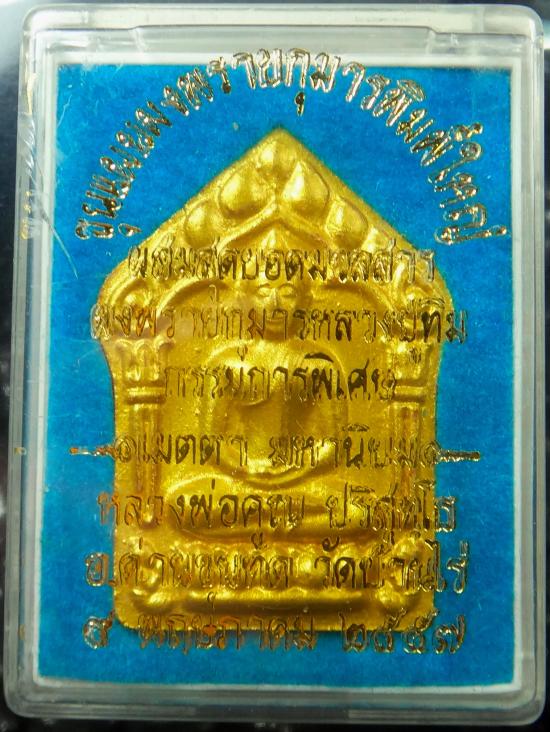 ขุนแผนผงพรายกุมารพิมพ์ใหญ่
ผสมสุดยอดมวลสาร
ผงพรายกุมารหลวงปู่ทิม
กรรมการพิเศษ
เมตตา มหานิยม
หลวงพ่อคูณ ปริสุทโธ
อ.ด่านขุนทด วัดบ้านไร่
๙ พฤษภาคม ๒๕๕๗